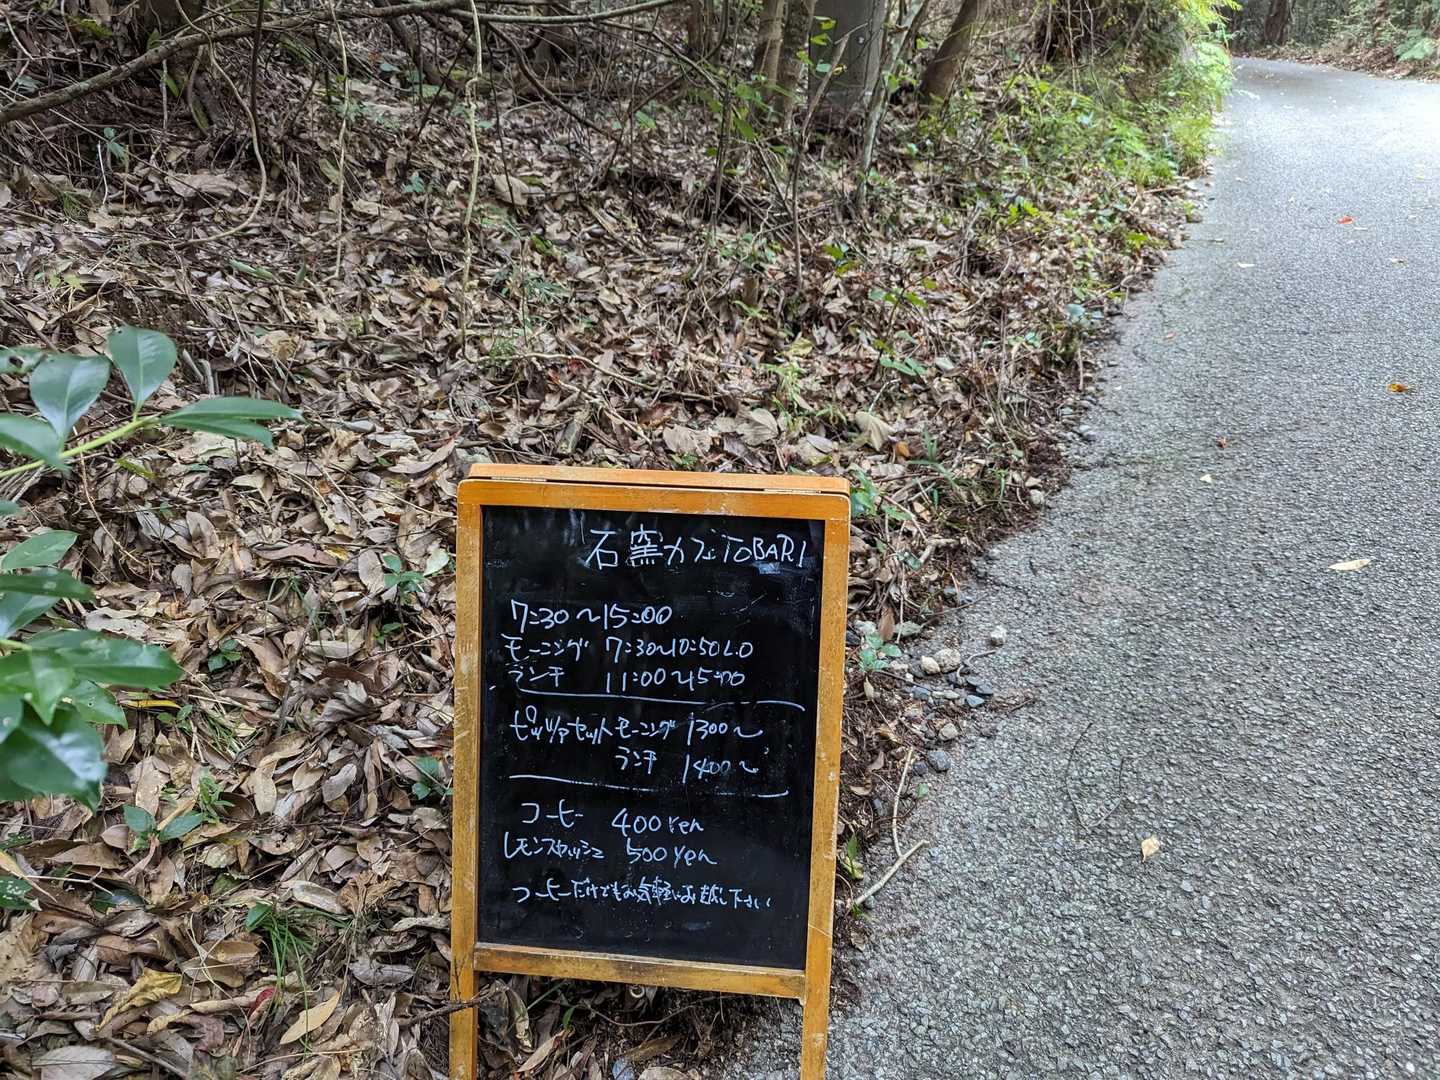 石窯カフェTOBARI
7:30〜15:00
モーニング 7:30〜10:50L.O
ランチ 11:00〜15:00
ピッツァセット モーニング 1300〜
ランチ 1400〜
コーヒー 400yen
レモンスカッシュ 500yen
コーヒーだけでもお気軽にお越し下さい